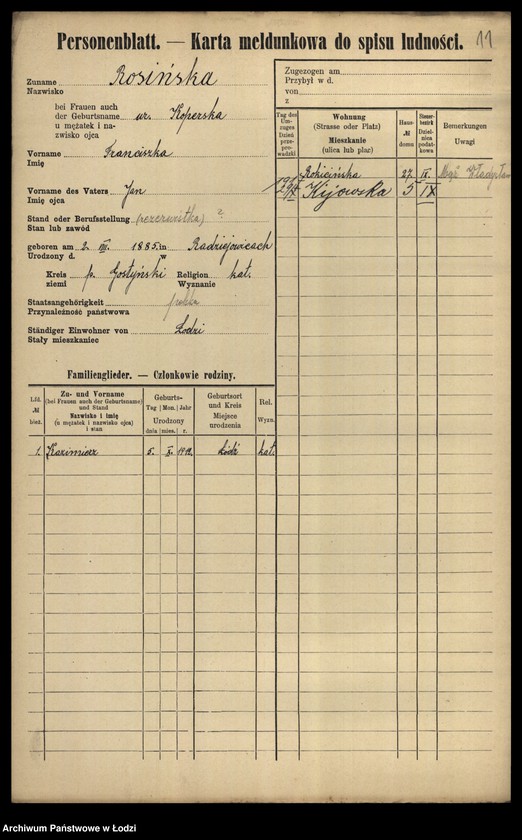 Personenblatt. — Karta meldunkowa do spisu ludności. 11
Zuname Rosińska
Nazwisko
bei Frauen auch
der Geburtsname ur. Koperska
u mężatek i na-
zwisko ojca
Vorname Franciszka
Imię
Vorname des Vaters Jan
Imię ojca
Stand oder Berufsstellung (rezerwistka) ?
Stan lub zawód
geboren am 2. VII. 1885. in Radziejowicach
Urodzony d. w
Kreis p. Gostyński Religion kat.
ziemi Wyznanie
Staatsangehörigkeit
Przynależność państwowa
Ständiger Einwohner von Łodzi
Stały mieszkaniec
Zugezogen am
Przybył w d.
von
z
Tag des Um-zuges Dzień prze-prowadzki
Wohnung
(Strasse oder Platz)
Mieszkanie
(ulica lub plac)
Haus-
№
domu
Steuer-bezirk
Dziel-nica podat-kowa
Bemerkungen
Uwagi
Rokicińska 27. IX. Mąż Władysław
Kijowska 5 IX
Familienglieder. — Członkowie rodziny.
Lfd.
№
bież.
Zu- und Vorname
(bei Frauen auch der Geburtsname)
und Stand
Nazwisko i imię
(u mężatek i nazwisko ojca)
i stan
Geburts-
Tag Mon. Jahr
Urodzony
dnia mies. r.
Geburtsort
und Kreis
Miejsce
urodzenia
Rel.
Wyzn.
1. Kazimierz 5. X. 1912. Łódź kat.
Archiwum Państwowe w Łodzi